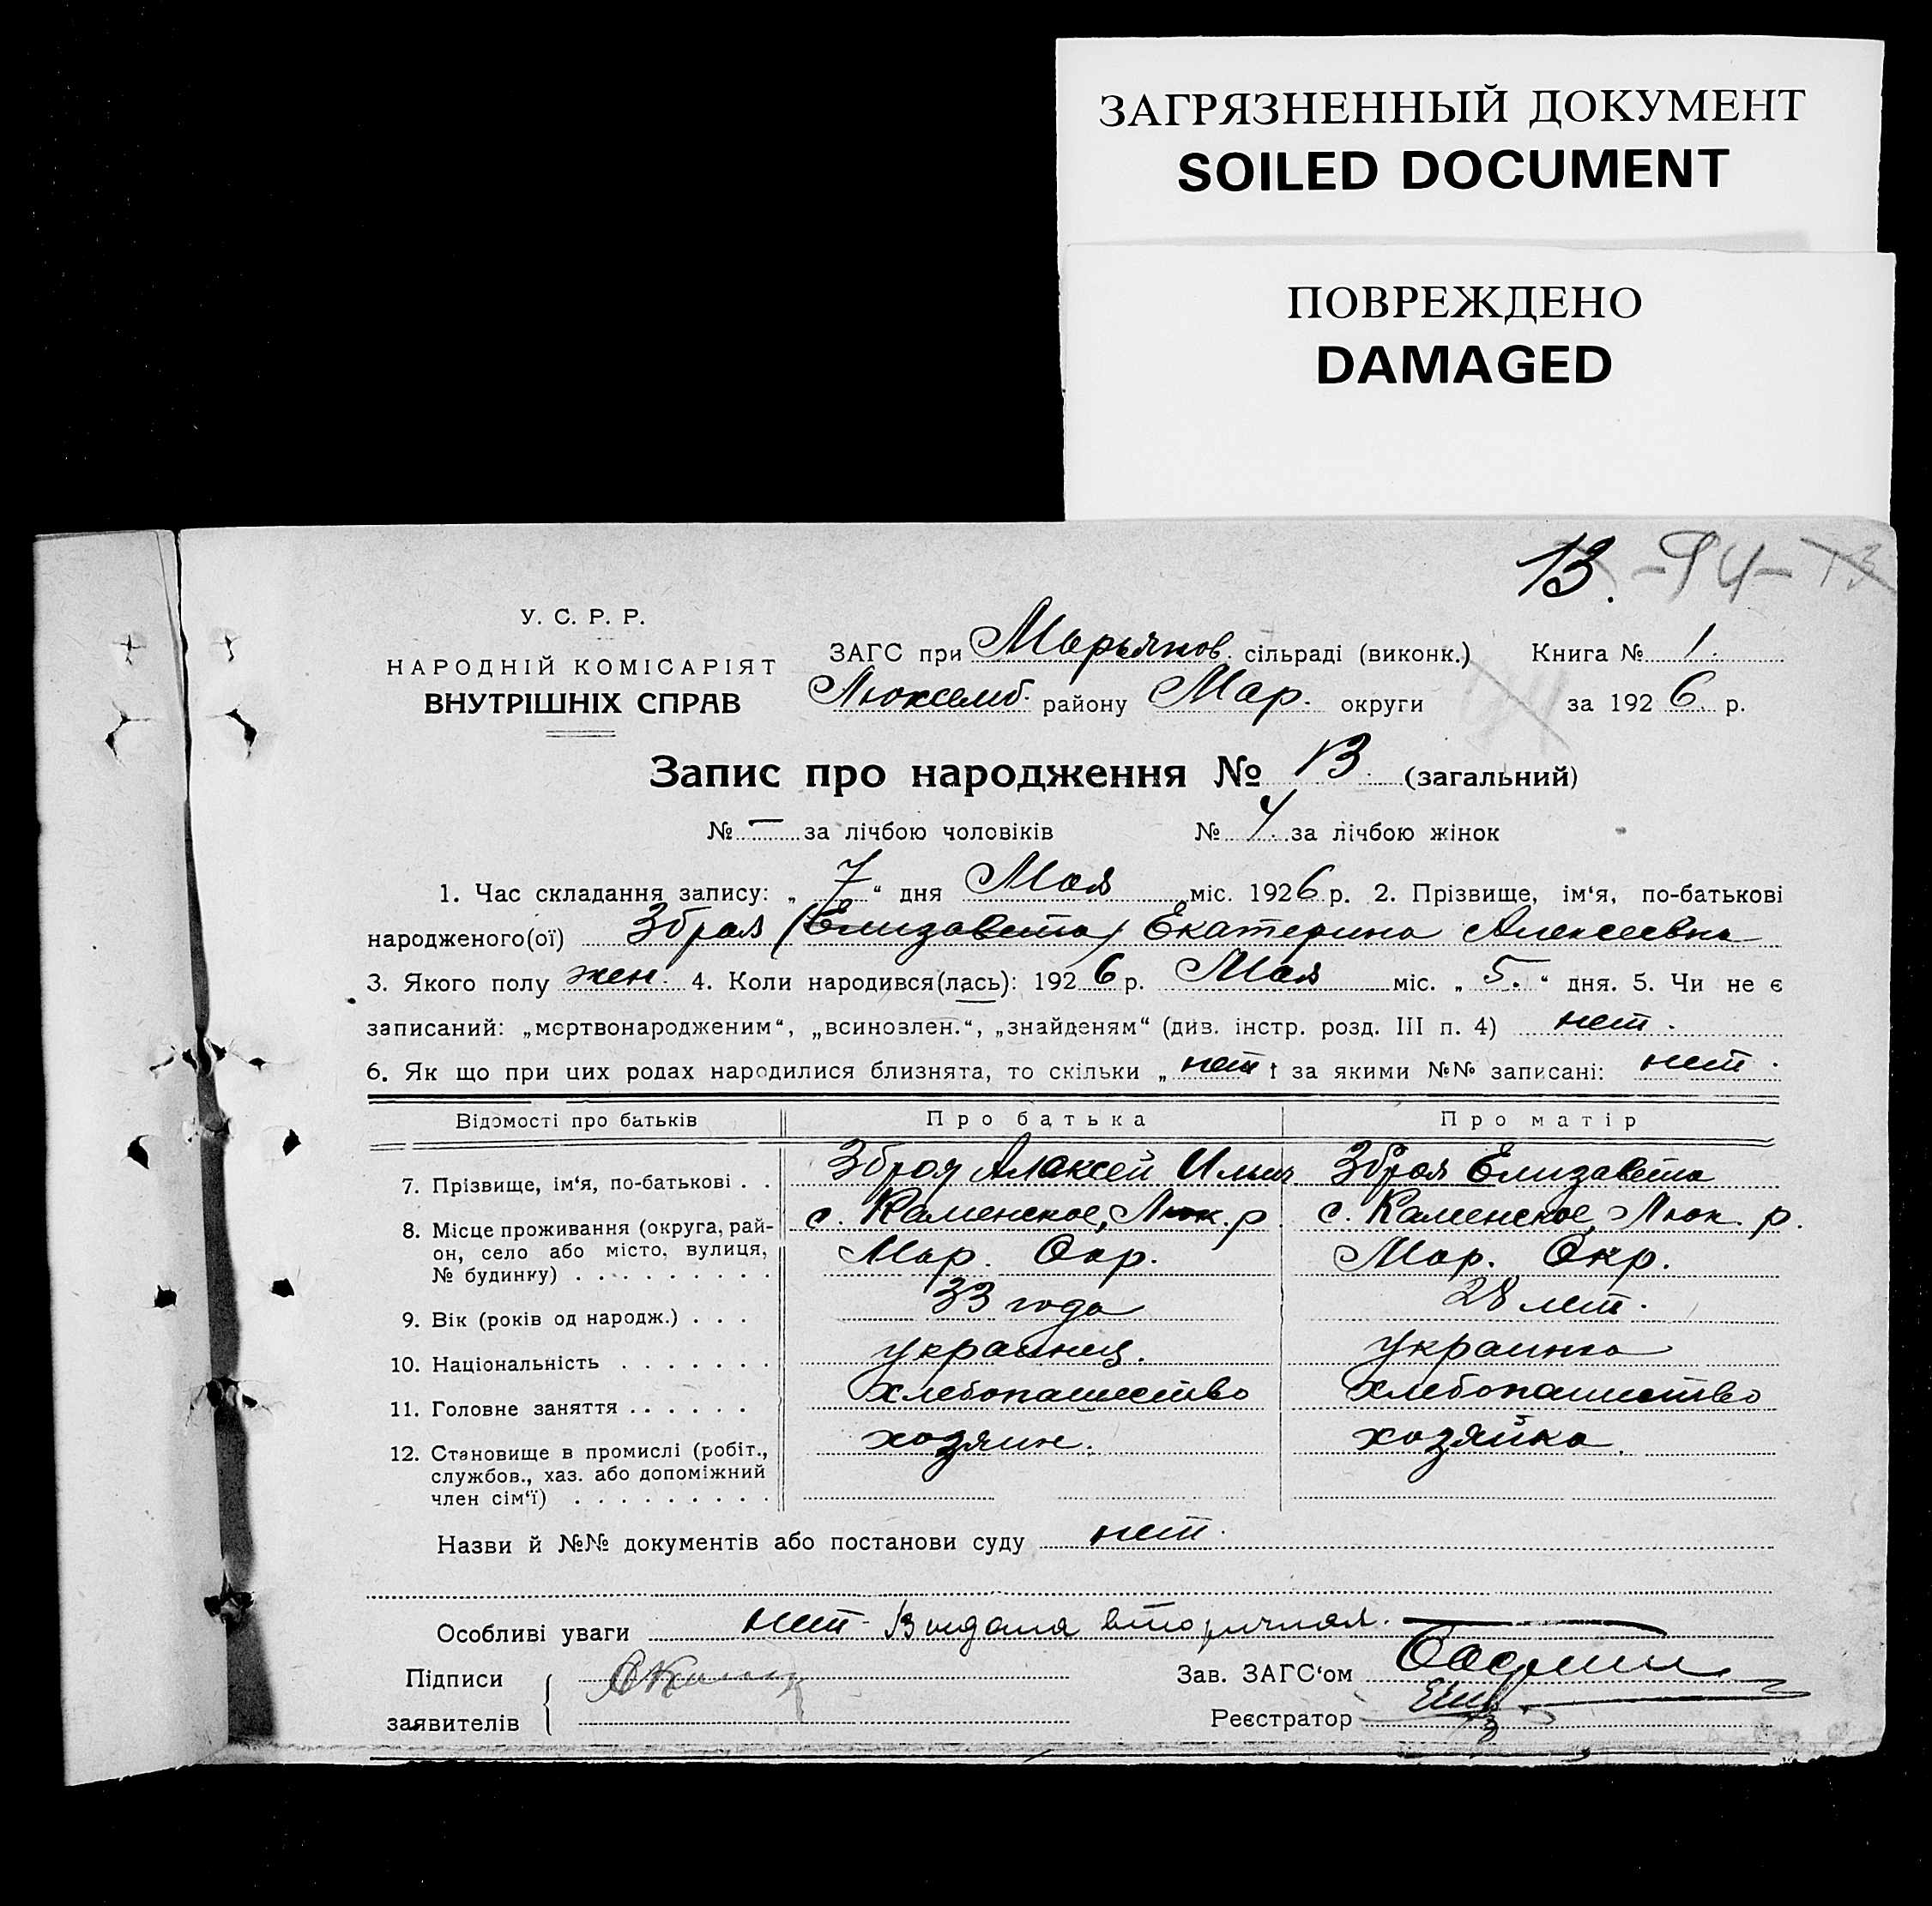 ЗАГРЯЗНЕННЫЙ ДОКУМЕНТ
SOILED DOCUMENT
ПОВРЕЖДЕНО
DAMAGED
13. -94- 13
У. С. Р. Р.
НАРОДНІЙ КОМІСАРІЯТ
ВНУТРІШНІХ СПРАВ
ЗАГС при Марьянов. сільраді (виконк.) Книга № 1.
Люксемб. району Мар. округи за 1926 р.
Запис про народження № 13. (загальний)
№ — за лічбою чоловіків № 4. за лічбою жінок
1. Час складання запису: „ 7 “ дня Мая міс. 1926 р. 2. Прізвище, ім‘я, по-батькові
народженого(ої) Зброя (Елизавета) Екатерина Алексеевна
3. Якого полу жен. 4. Коли народився(лась): 1926 р. Мая міс. „ 5. “ дня. 5. Чи не є
записаний: „мертвонародженим“, „всиновлен.“, „знайденям“ (див. інстр. розд. III п. 4) нет.
6. Як що при цих родах народилися близнята, то скільки „ нет ı за якими №№ записані: нет.
Відомості про батьків Про батька Про матір
7. Прізвище, ім‘я, по-батькові . . Зброя Алексей Ильич Зброя Елизавета
8. Місце проживання (округа, рай- с. Каменское, Люк. р. с. Каменское, Люк. р.
он, село або місто, вулиця, Мар. Окр. Мар. Окр.
№ будинку) . . . . . . . . .
9. Вік (років од народж.) . . . 33 года 28 лет.
10. Національність . . . . . . . украинец. украинка
11. Головне заняття . . . . . . хлебопашество хлебопашество
12. Становище в промислі (робіт., хозяин. хозяйка.
службов., хаз. або допоміжний
член сім‘ї) . . . . . . . . .
Назви й №№ документів або постанови суду нет.
Особливі уваги нет - Выдана вторичная.
Підписи Зав. ЗАГС‘ом
заявителів Реєстратор